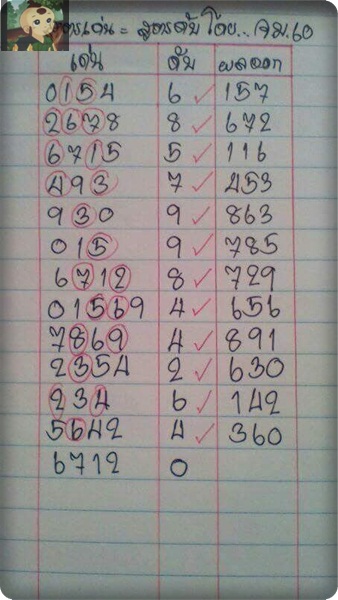 สูตรเด่น = สูตรดับ โดย.. จม.60
เด่น ดับ ผลออก
0154 6 ✓ 157
2678 8 ✓ 672
6715 5 ✓ 116
493 7 ✓ 453
930 9 ✓ 863
015 9 ✓ 785
6712 8 ✓ 729
01569 4 ✓ 656
7869 4 ✓ 891
2354 2 ✓ 630
234 6 ✓ 142
5642 4 ✓ 360
6712 0